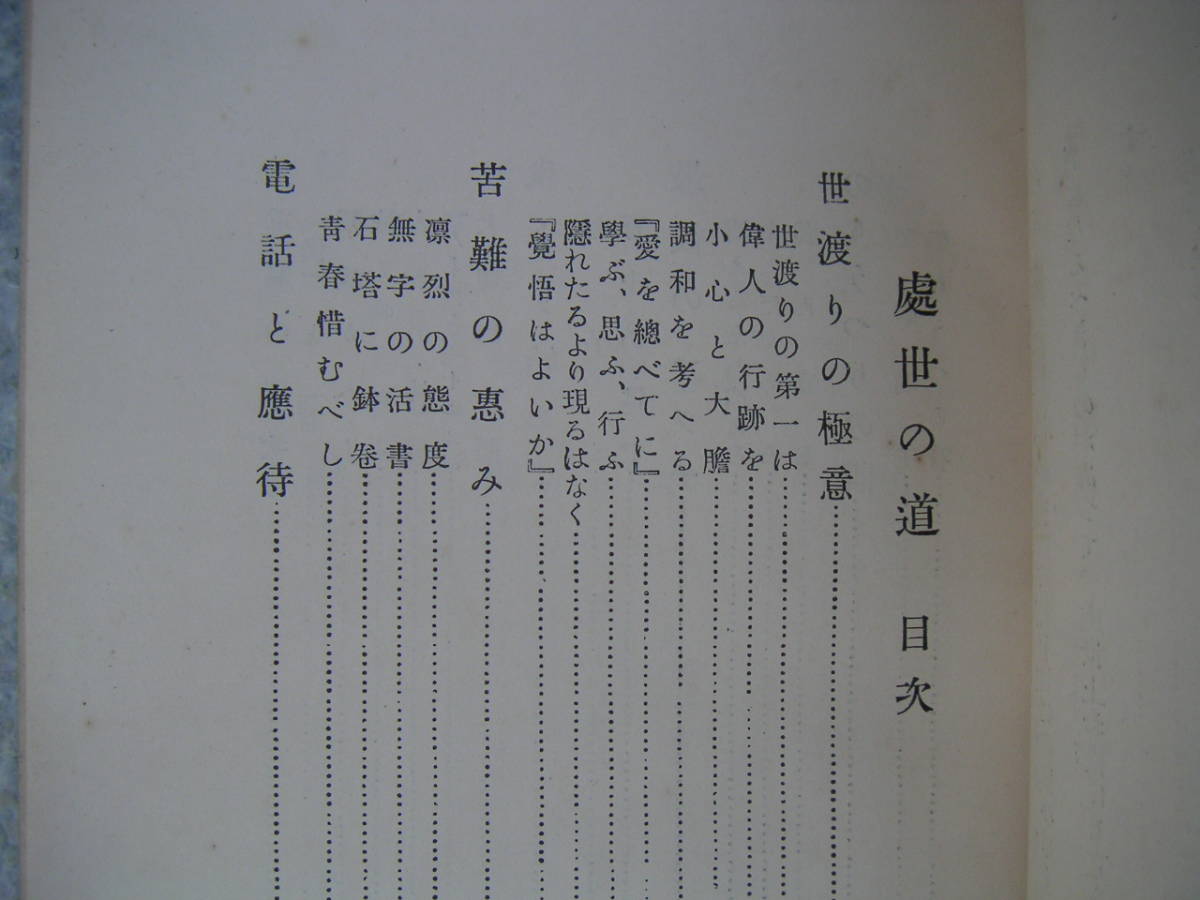 處世の道 目次
世渡りの極意
世渡りの第一は
偉人の行跡を
小心と大膽
調和を考へる
『愛を總べてに』
學ぶ、思ふ、行ふ
隱れたるより現るはなく
『覺悟はよいか』
苦難の惠み
凛烈の態度
無字の活書
石塔に鉢卷
靑春惜むべし
電話と應待